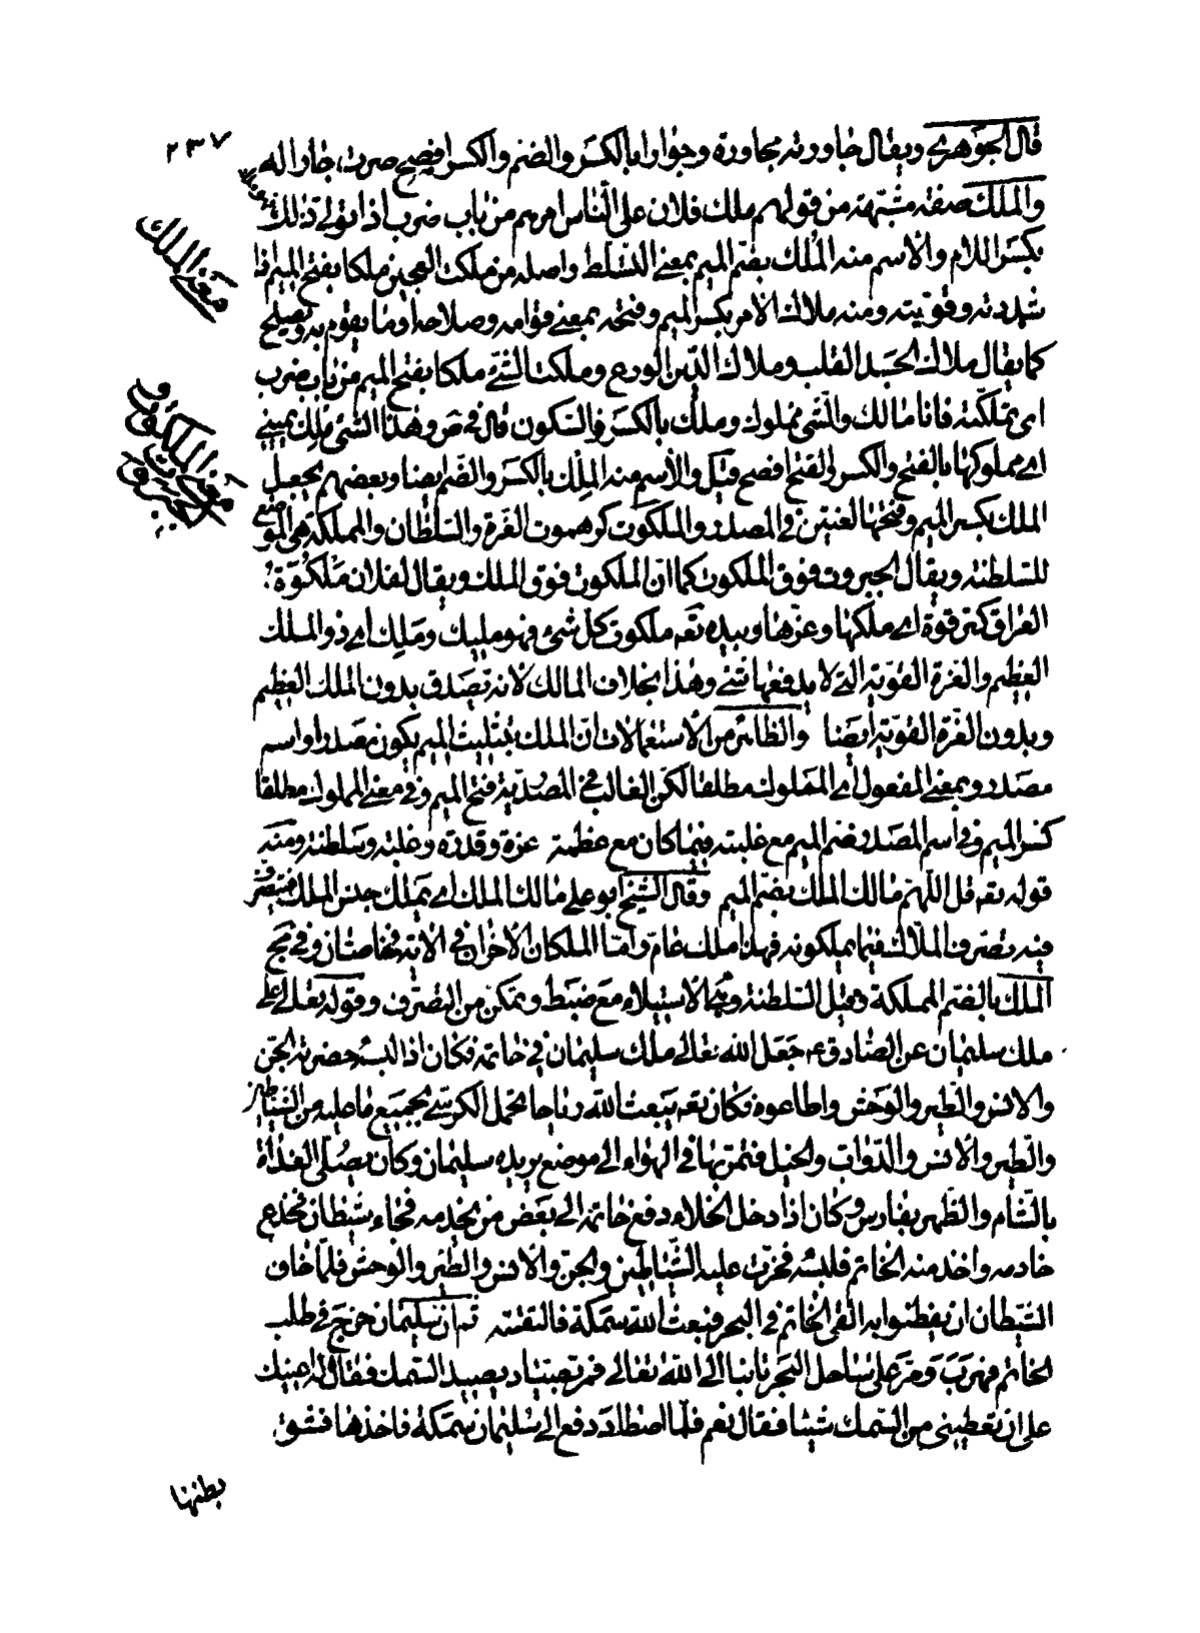 ٢٣٧
قال الجوهري ويقال جاورته مجاورة وجوارا بالكسر والضم والكسر افصح صرت جارا له
والملك صفة مشبهة من قولهم ملك فلان على الناس امرهم من باب ضرب اذا تولى ذلك
بكسر اللام والاسم منه الملك بضم الميم بمعنى التسلط واصله من ملكت العجين ملكا بفتح الميم اذا
شددته وقويته ومنه ملاك الامر بكسر الميم وفتحه بمعنى قوامه وصلاحه وما يقوم به ويصلح
كما يقال ملاك الجسد القلب وملاك الدين الورع وملكت الشئ ملكا بفتح الميم من باب ضرب
اى تملكته فانا مالك والشئ مملوك وملك بالكسر فالسكون قال في ص وهذا الشئ ملك يمينى
اى مملوكها بالفتح والكسر والفتح افصح قيل والاسم منه الملك بالكسر والضم ايضا وبعضهم يجعل
الملك بكسر الميم وفتحها لغتين في المصدر والملكوت كرهبوت العزة والسلطان والمملكة هى الموضع
للسلطنة ويقال الجبروت فوق الملكوت كما ان الملكوت فوق الملك ويقال لفلان ملكوة
العراق كترقوة اى ملكها وعزها وبيده تعه ملكوت كل شئ فهو مليك وملك اى ذو الملك
العظيم والعزة القوية التى لا يدفعها شئ وهذا بخلاف المالك لانه يصدق بدون الملك العظيم
وبدون العزة القوية ايضا والظاهر من الاستعمالات ان الملك بتثليث الميم يكون مصدرا واسم
مصدر وبمعنى المفعول اى المملوك مطلقا لكن الغالب في المصدرية فتح الميم وفي معنى المملوك مطلقا
كسر الميم وفي اسم المصدر ضم الميم مع غلبته فيما كان مع عظمة عزة وقدرة وغلبة وسلطنة ومنه
قوله تعه قل اللهم مالك الملك بضم الميم وقال الشيخ ابو على مالك الملك اى يملك جنس الملك فيتصرف
فيه تصرف الملاك فيما يملكونه فهذا ملك عام واما الملكان الاخران في الاية فخاصان وفي مج
الملك بالضم المملكة وقيل السلطنة وهى الاستيلاء مع ضبط وتمكن من التصرف وقوله تعالى على
ملك سليمان عن الصادق ع جعل الله تعالى ملك سليمان في خاتمه فكان اذا لبسه حضرته الجن
والانس والطير والوحش واطاعوه فكان تعه يبعث الله رياحا تحمل الكرسى بجميع ما عليه من الشياطين
والطير والانس والدواب والخيل فتمر بها في الهواء الى موضع يريده سليمان وكان يصلى الغداة
بالشام والظهر بفارس وكان اذا دخل الخلاء دفع خاتمه الى بعض من يخدمه فجاء شيطان فخدع
خادمه واخذ منه الخاتم فلبسه فخرت عليه الشياطين والجن والانس والطير والوحش فلما خاف
الشيطان ان يفطنوا به القى الخاتم في البحر فبعث الله سمكة فالتقمته ثم ان سليمان خرج في طلب
الخاتم فهرب ومر على ساحل البحر تائبا الى الله تعالى فمر بصياد يصيد السمك فقال له اعينك
على ان تعطينى من السمك شيئا فقال نعم فلما اصطاد دفع الى سليمان سمكة فاخذها فشق
بطنها
معنى الملك
معنى الملكوت و
الجبروت